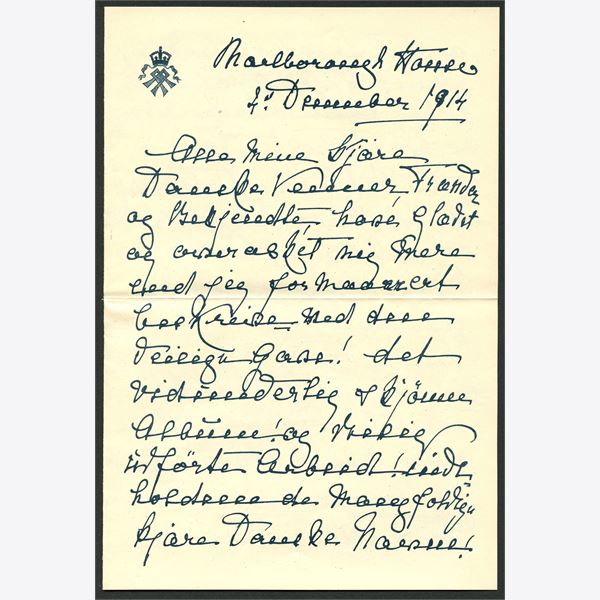 Marlborough House
4de December 1914
Alle mine kjære
Danske Venner Frænder
og Bekjendte, have glædet
og overrasket mig mere
end jeg formaaer at
beskreive med den
deilige Gave! det
vidunderlig skjönne
Album! og
udförte Arbeid! inde
holdende de mangfoldige
kjære Danske Navne!